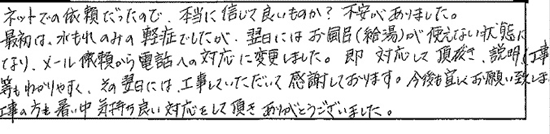 ネットでの依頼だったので、本当に信じて良いものか？不安がありました。
最初は、水もれのみの軽症でしたが、翌日にはお風呂(給湯)が使えない状態に
なり、メール依頼から電話への対応に変更しました。即 対応して頂き、説明、工事
等もわかりやすく、その翌日には、工事していただいて感謝しております。今後も宜しくお願い致しま
工事の方も暑い中気持の良い対応をして頂きありがとうございました。